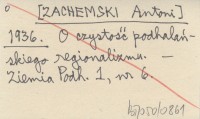 [ZACHEMSKI Antoni]
1936. O czystość podhalań-
skiego regionalizmu. —
Ziemia Podh. 1, nr 6.